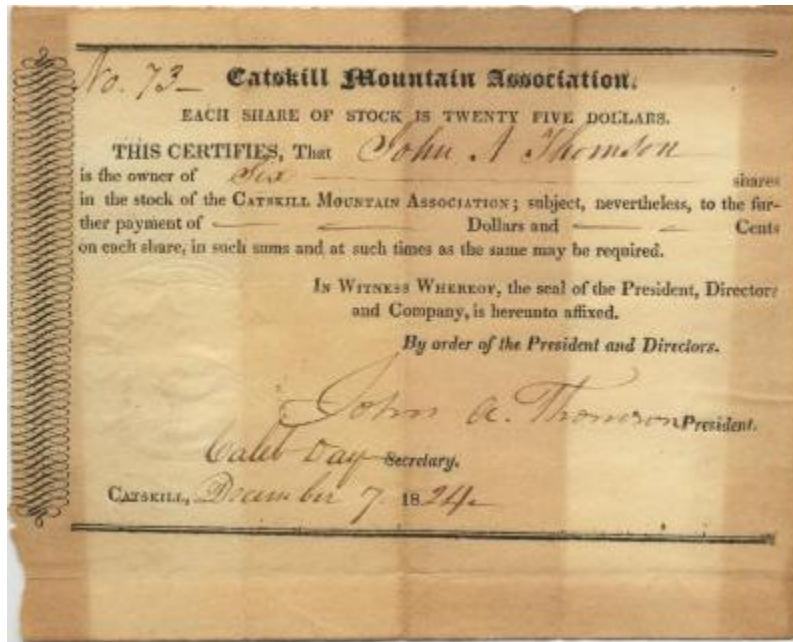 No. 73 Catskill Mountain Association.
EACH SHARE OF STOCK IS TWENTY FIVE DOLLARS.
THIS CERTIFIES, That John A Thomson
is the owner of Six shares
in the stock of the CATSKILL MOUNTAIN ASSOCIATION; subject, nevertheless, to the fur-
ther payment of Dollars and Cents
on each share, in such sums and at such times as the same may be required.
IN WITNESS WHEREOF, the seal of the President, Directors
and Company, is hereunto affixed.
By order of the President and Directors.
John A. Thomson President.
Caleb Day Secretary.
CATSKILL, December 7 1824